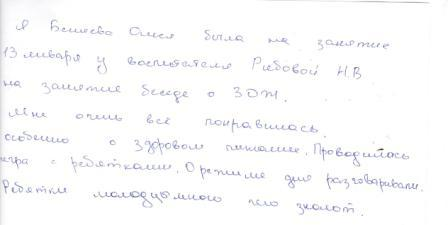 Я Бешево Олеся была на занятие
13 января у воспитателя Рябовой Н.В
на занятие беседе о ЗОЖ.
Мне очень всё понравилась.
особенно о здоровом питании. Проводилась
игра с ребятками. О режиме дня разговаривали.
Ребятки молодцы много чего знают.